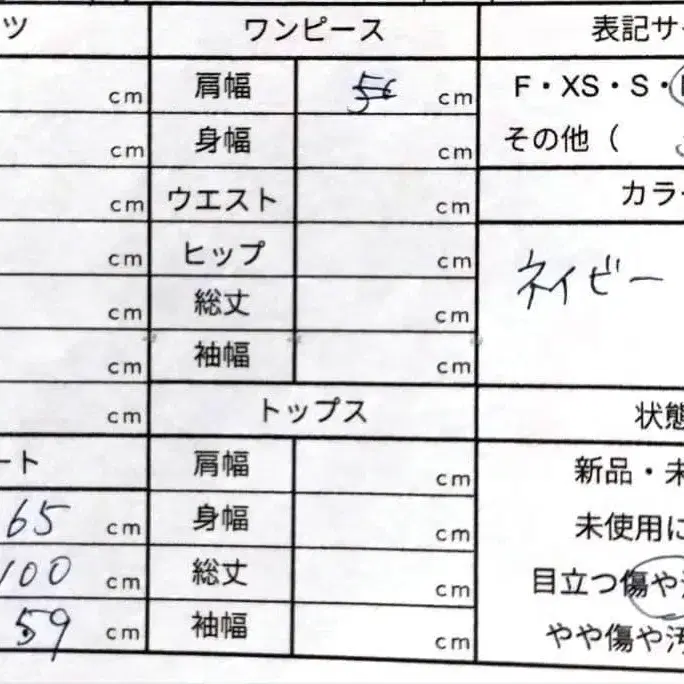 ツ ワンピース 表記サ
cm 肩幅 cm F・XS・S・
cm 身幅 cm その他（
cm ウエスト cm カラ
cm ヒップ cm ネイビー
cm 総丈 cm
cm 袖幅 cm
cm トップス 状態
ート 肩幅 cm 新品・未
65 cm 身幅 cm 未使用に
100 cm 総丈 cm 目立つ傷や
59 cm 袖幅 cm やや傷や汚